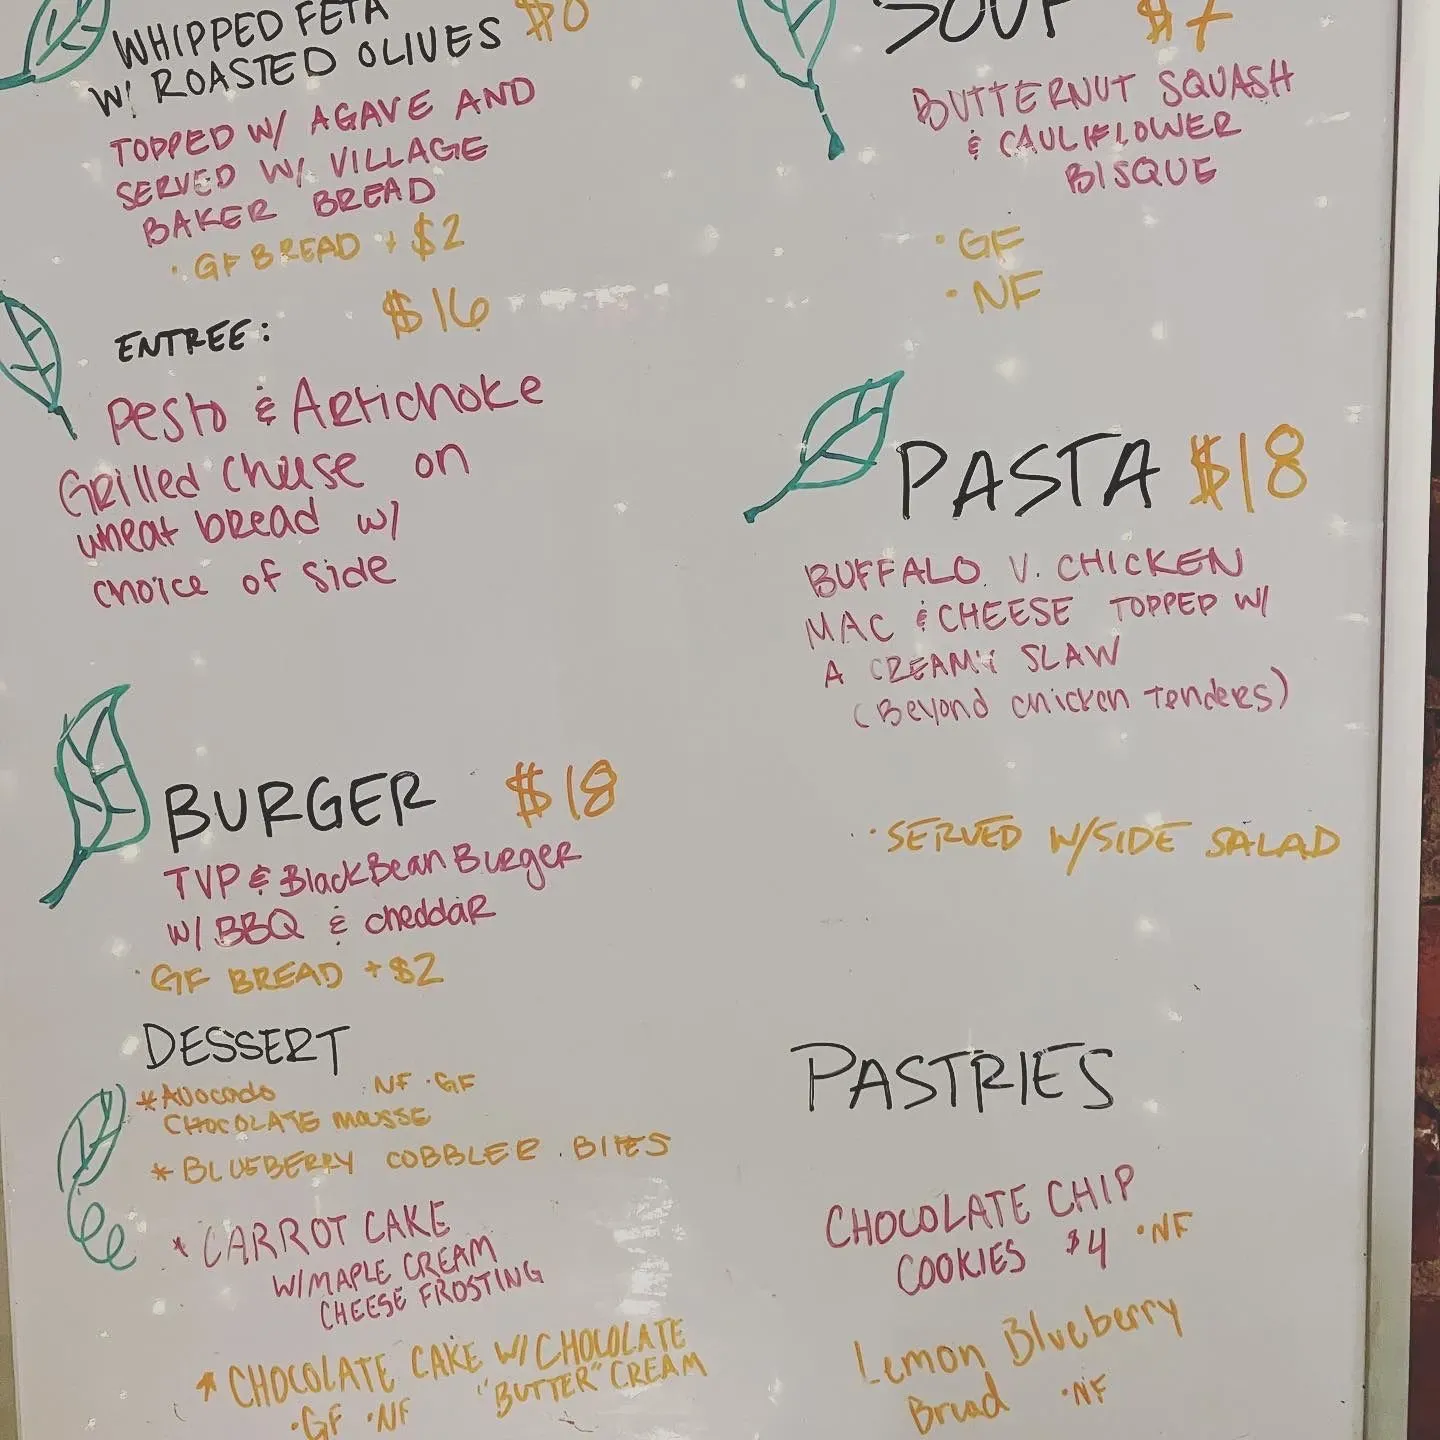 WHIPPED FETA
W/ ROASTED OLIVES
TOPPED W/ AGAVE AND
SERVED W/ VILLAGE
BAKER BREAD
· GF BREAD + $2
ENTREE: $16
Pesto & Artichoke
Grilled Cheese on
wheat bread w/
choice of side
BURGER $18
TVP & Black Bean Burger
w/ BBQ & cheddar
· GF BREAD + $2
DESSERT
* Avocado NF · GF
CHOCOLATE MOUSSE
* BLUEBERRY COBBLER BITES
* CARROT CAKE
W/ MAPLE CREAM
CHEESE FROSTING
* CHOCOLATE CAKE W/ CHOCOLATE
"BUTTER" CREAM
· GF · NF
SOUP $7
BUTTERNUT SQUASH
& CAULIFLOWER
BISQUE
· GF
· NF
PASTA $18
BUFFALO V. CHICKEN
MAC & CHEESE TOPPED W/
A CREAMY SLAW
(Beyond chicken tenders)
· SERVED W/ SIDE SALAD
PASTRIES
CHOCOLATE CHIP
COOKIES $4 · NF
Lemon Blueberry
Bread · NF